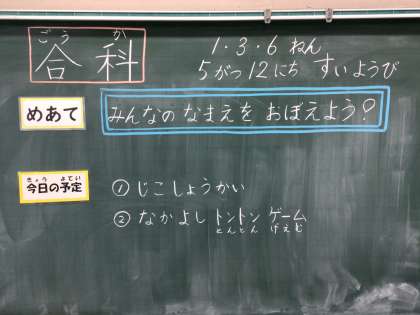 ごうか
合科
1・3・6 ねん
5がつ12にち すいようび
めあて
みんなの なまえを おぼえよう?
きょう よてい
今日の予定
①じこしょうかい
②なかよし トントン ゲーム
とんとん げえむ